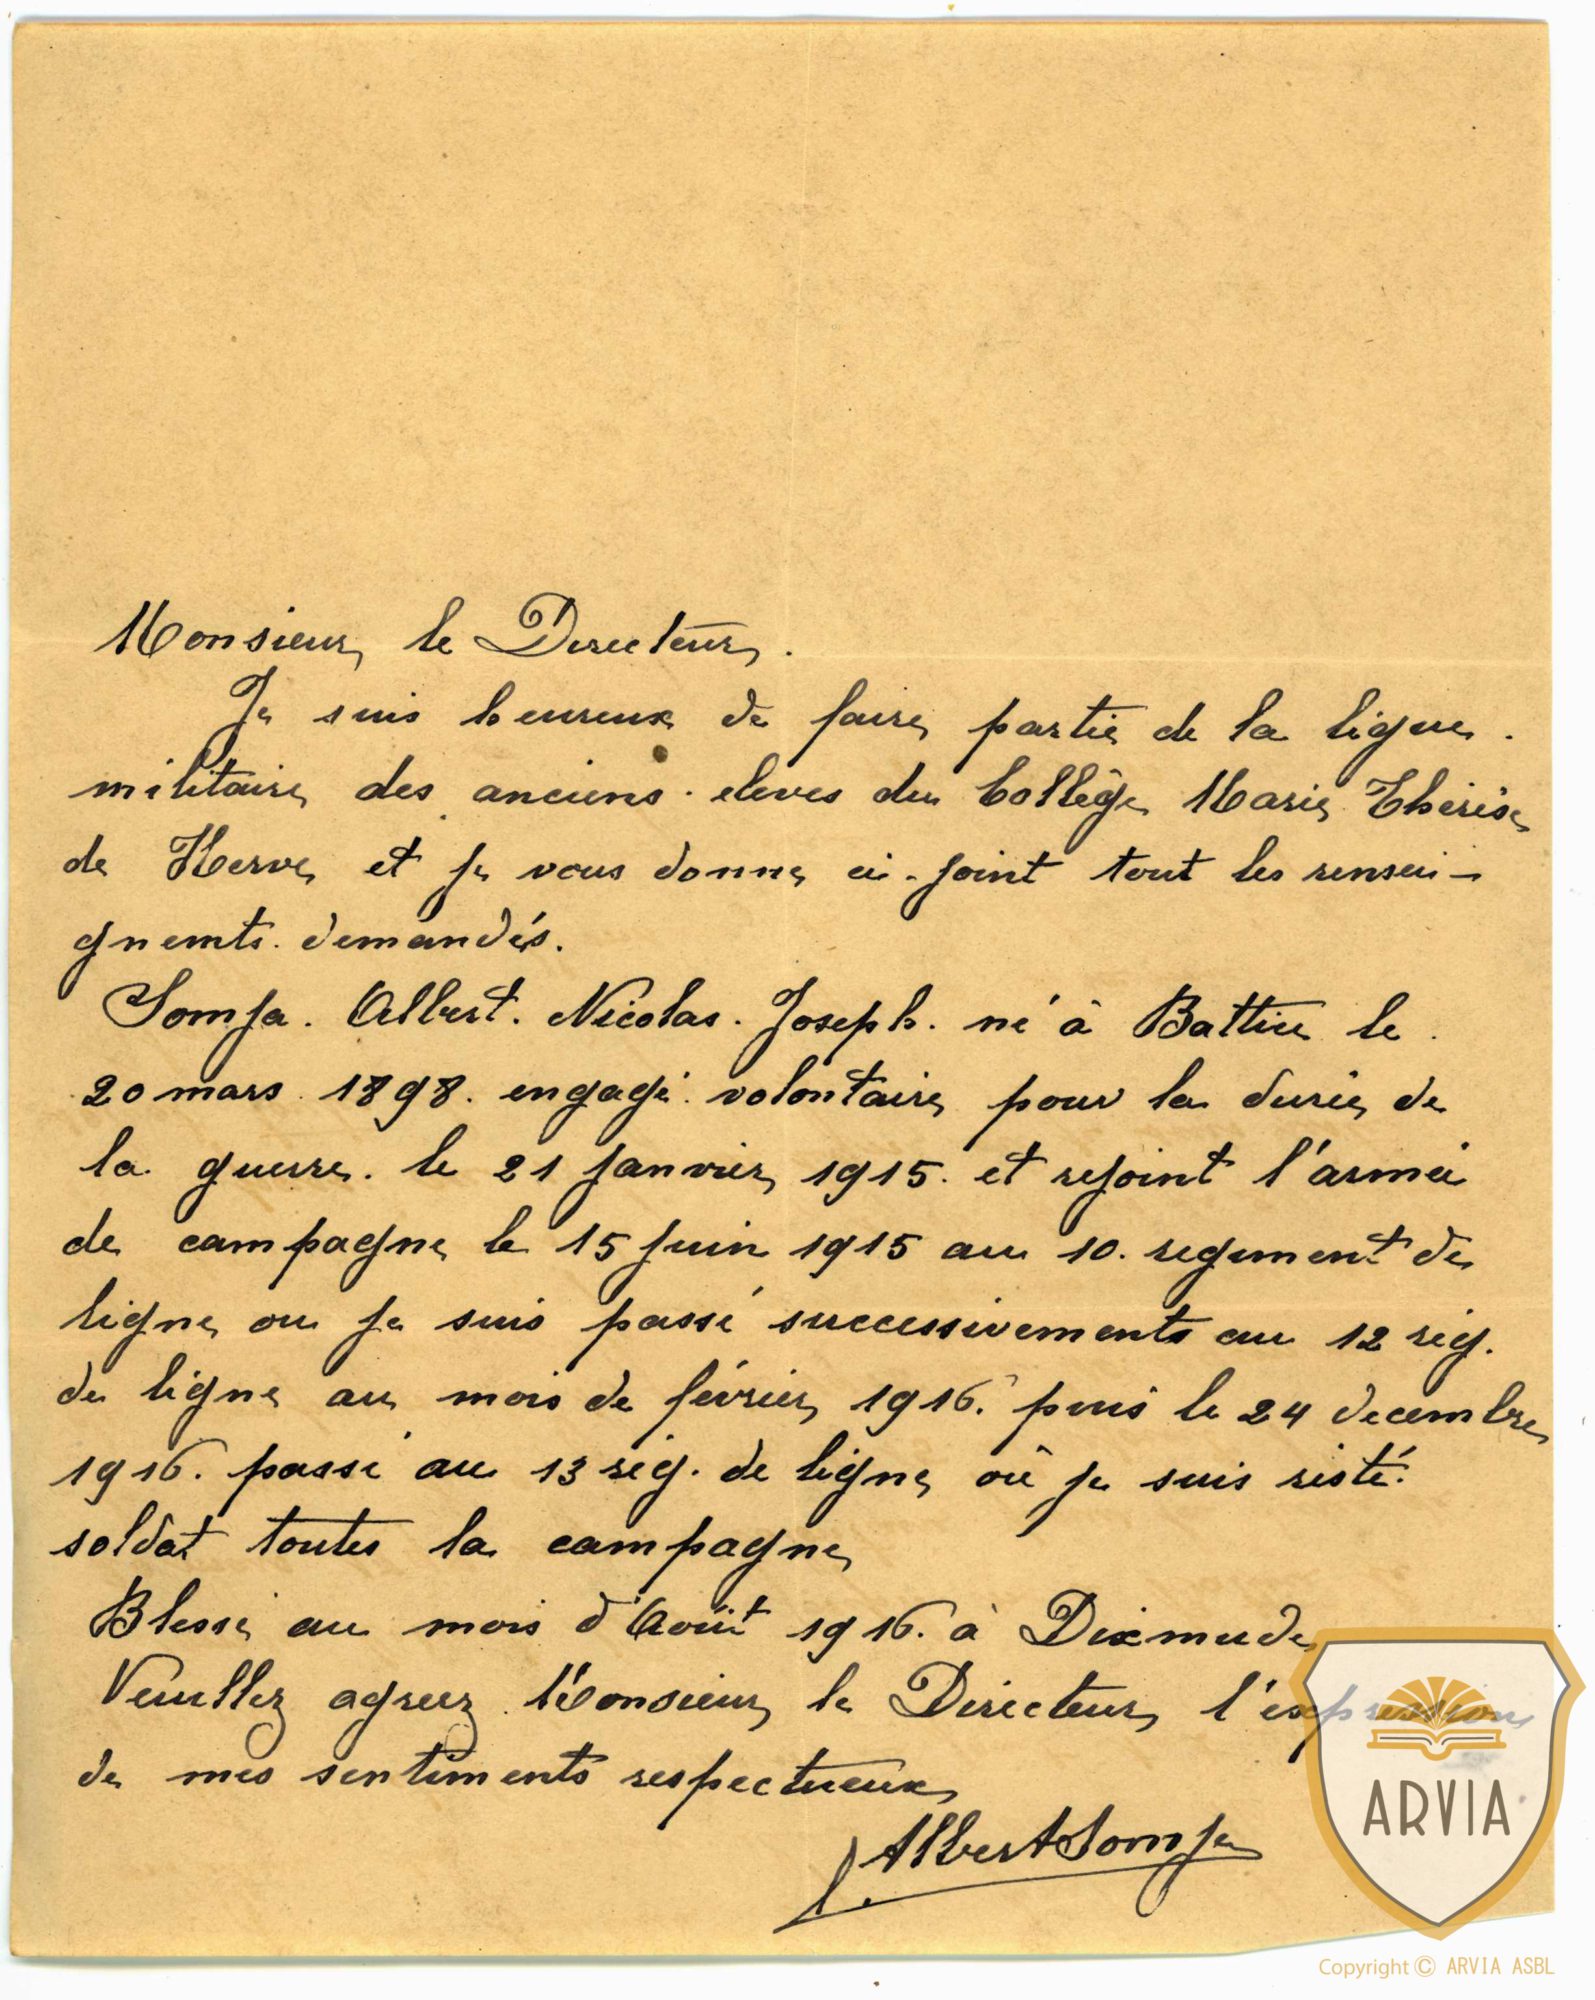 Monsieur le Directeur.
Je suis heureux de faire partie de la ligue.
militaire des anciens. eleves du Collège Marie Thérèse
de Herve et je vous donne ci-joint tout les rensei-
gnemts. demandés.
Somja. Albert. Nicolas. Joseph. né à Battice le.
20 mars 1898. engagé. volontaire pour la durée de
la guerre. le 21 janvier 1915. et rejoint l'armée
de campagne le 15 juin 1915 au 10. regiment de
ligne ou je suis passé successivements au 12 rég.
de ligne au mois de février 1916. puis le 24 decembre
1916. passé au 13 rég. de ligne où je suis resté.
soldat toutes la campagne
Blessé au mois d'Août 1916. à Dixmude
Veuillez agreer Monsieur le Directeur l'expression
de mes sentiments respectueux
Albert Somja
ARVIA
Copyright © ARVIA ASBL